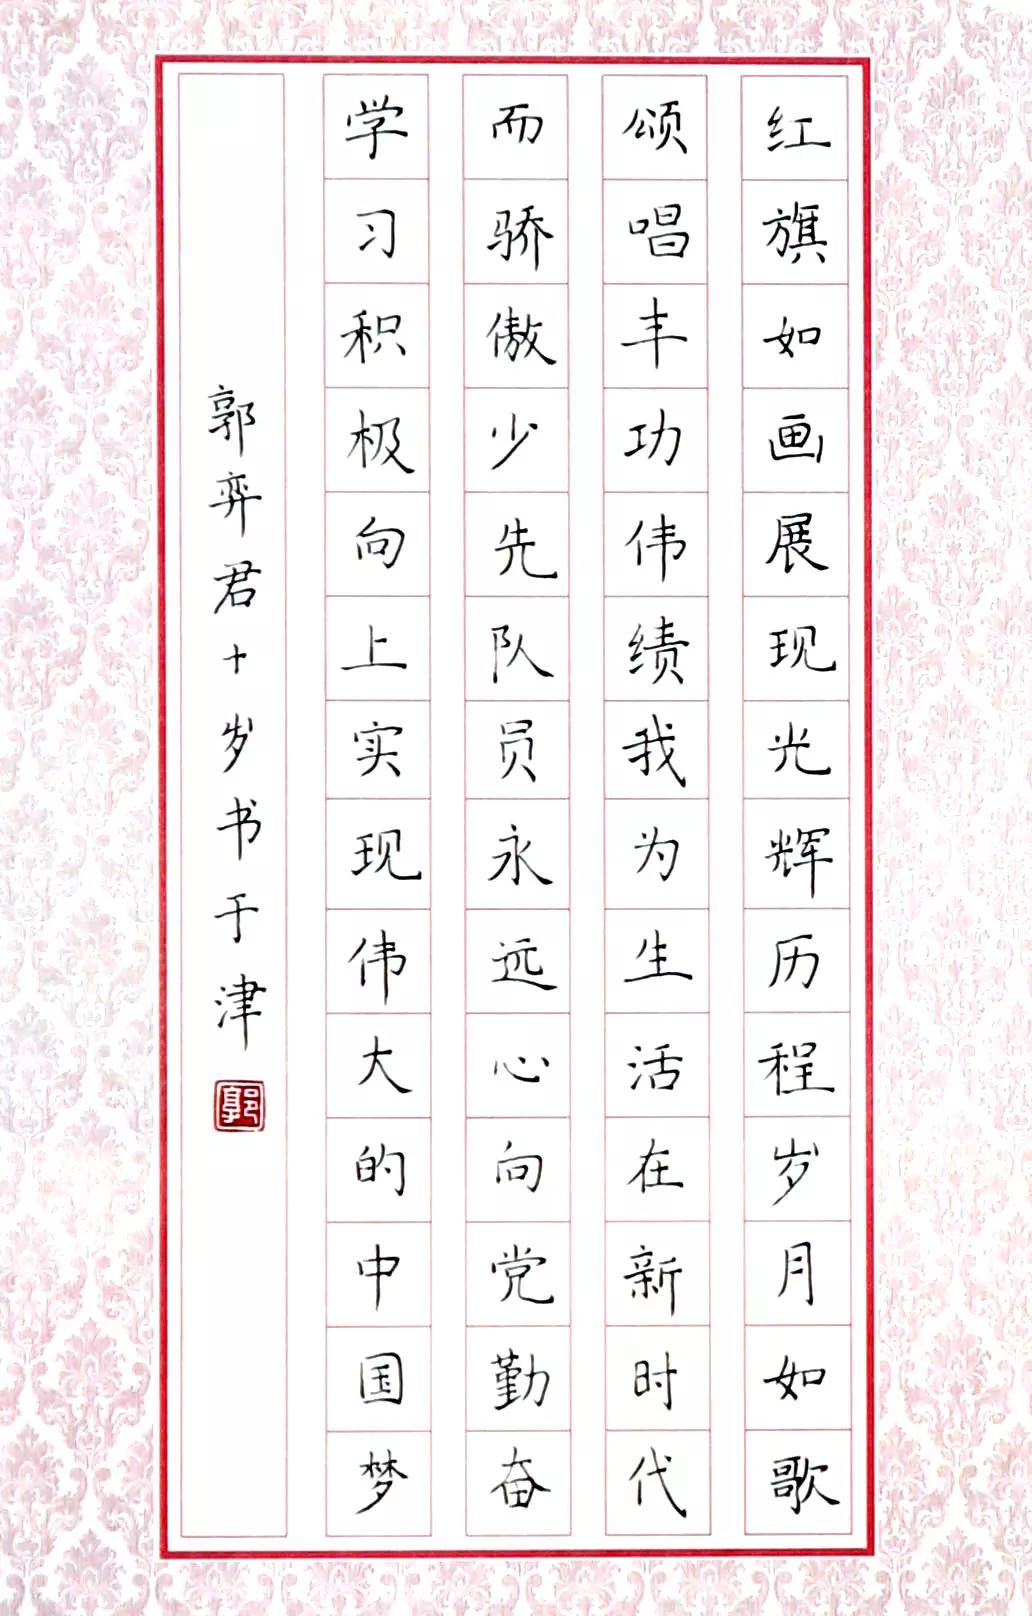 红旗如画展现光辉历程岁月如歌
颂唱丰功伟绩我为生活在新时代
而骄傲少先队员永远心向党勤奋
学习积极向上实现伟大的中国梦
郭弈君十岁书于津
郭